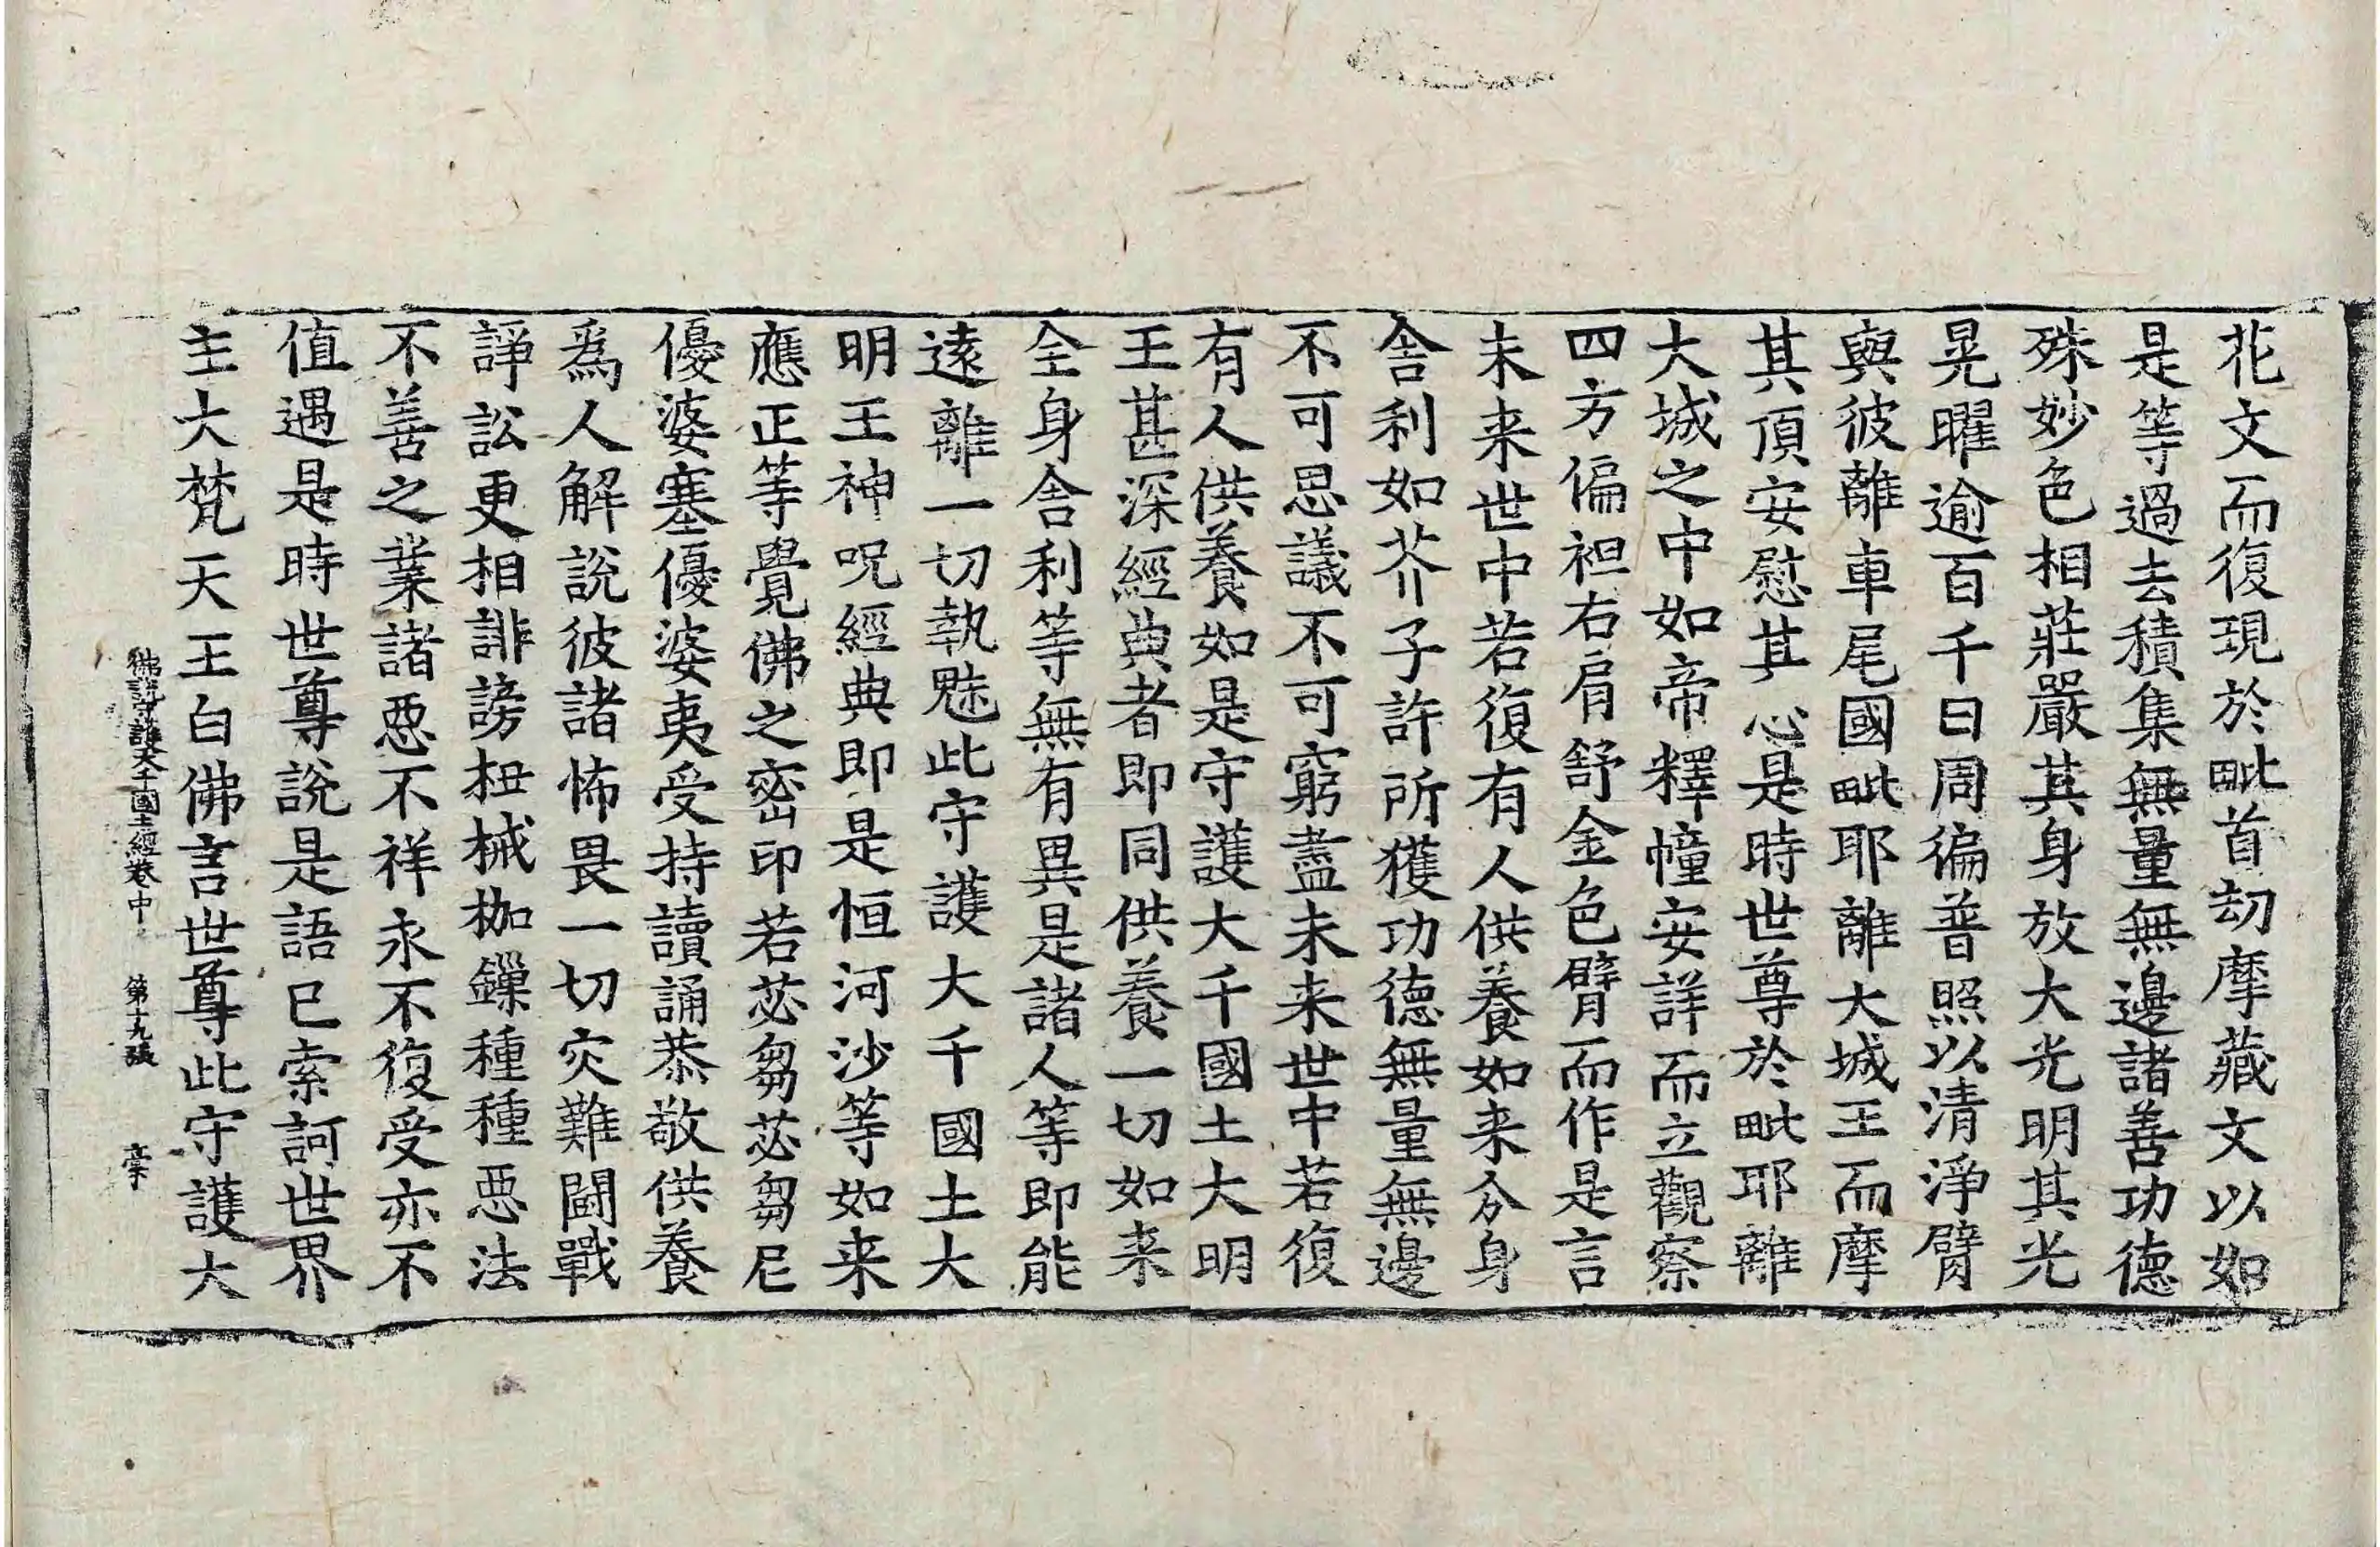 花文而復現於毗首刧摩藏文以如
是等過去積集無量無邊諸善功德
殊妙色相莊嚴其身放大光明其光
晃曜逾百千日周徧普照以清淨臂
與彼離車尾國毗耶離大城王而摩
其頂安慰其心是時世尊於毗耶離
大城之中如帝釋幢安詳而立觀察
四方偏袒右肩舒金色臂而作是言
未来世中若復有人供養如来分身
舎利如芥子許所獲功德無量無邊
不可思議不可窮盡未来世中若復
有人供養如是守護大千國土大明
王甚深經典者即同供養一切如来
全身舎利等無有異是諸人等即能
遠離一切執魅此守護大千國土大
明王神呪經典即是恒河沙等如来
應正等覺佛之密印若苾芻苾芻尼
優婆塞優婆夷受持讀誦恭敬供養
爲人解說彼諸怖畏一切灾難鬪戰
諍訟更相誹謗杻械枷鏁種種惡法
不善之業諸惡不祥永不復受亦不
值遇是時世尊說是語已索訶世界
主大梵天王白佛言世尊此守護大
佛說守護大千國土經卷中 第十九張 槀